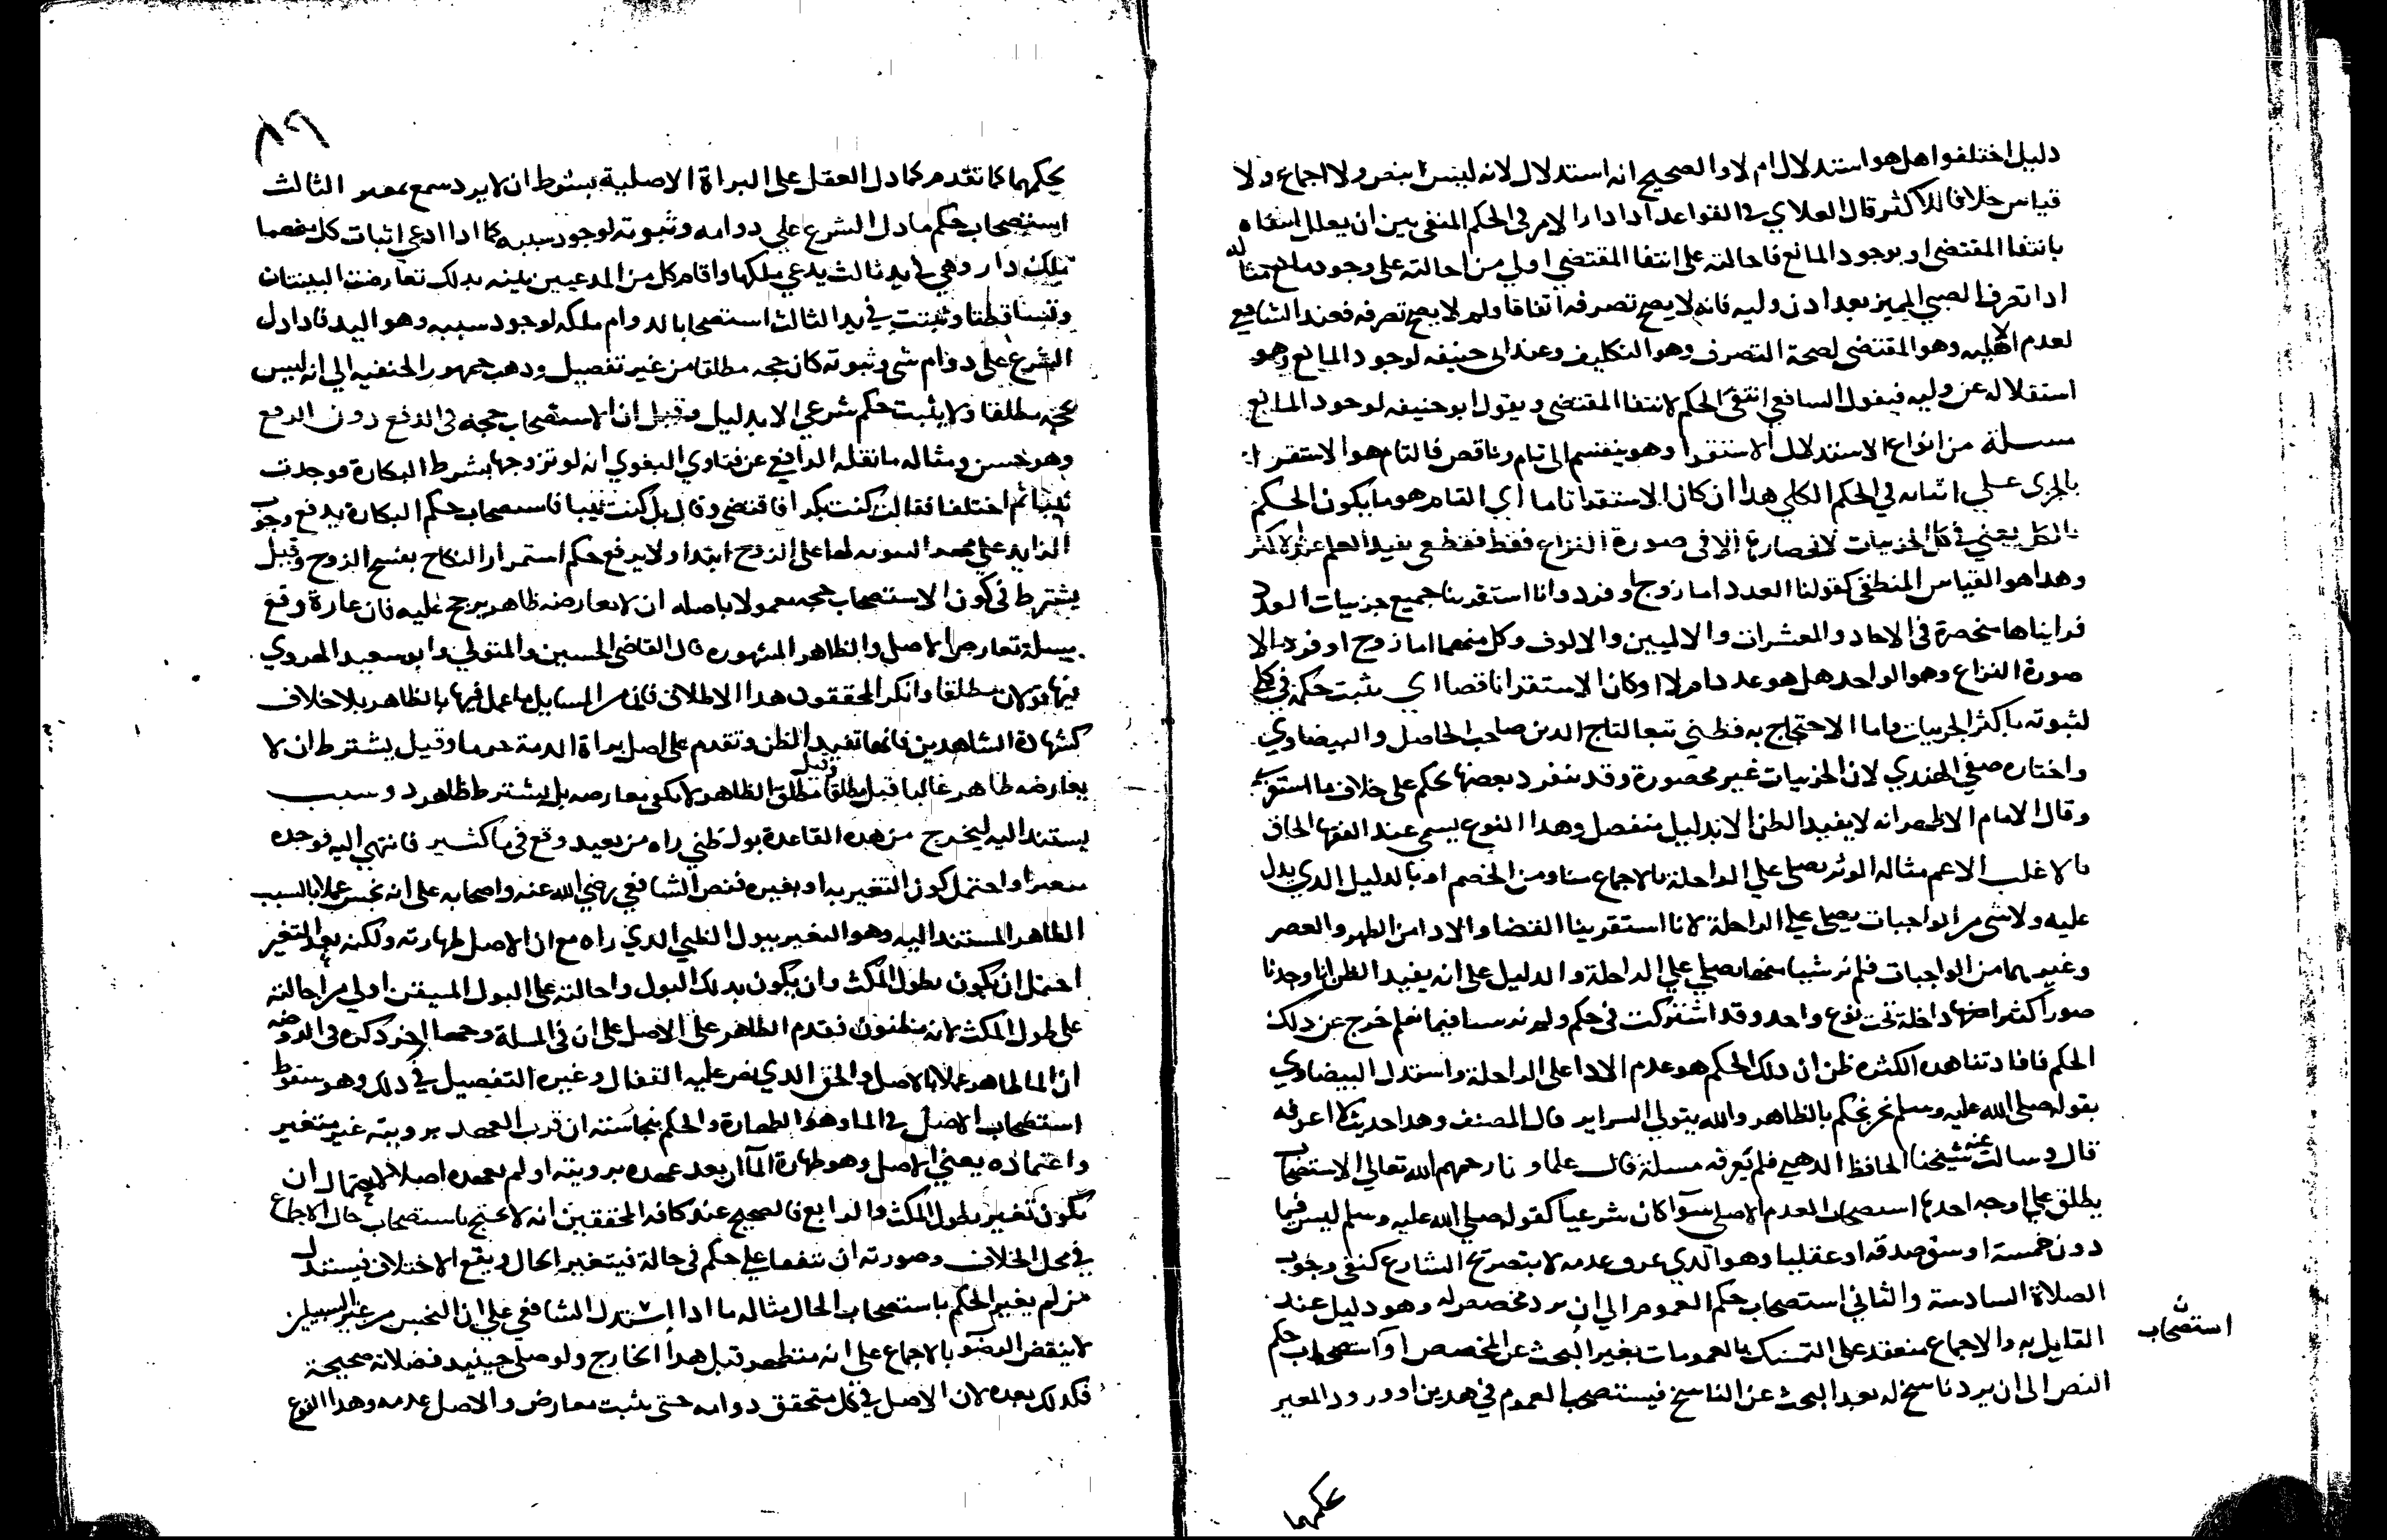 دليل اختلفوا هل هو استدلال ام لا والصحيح انه استدلال لانه ليس بنص ولا اجماع ولا
قياس خلافا للاكثر قال العلاي في القواعد اذا دار الامر في الحكم المنفي بين ان يعلل انتفاه
بانتفا المقتضى او بوجود المانع فاحالته على انتفا المقتضي اولي من احالته على وجود مانع مثاله
اذا تصرف الصبي المميز بعد اذن وليه فانه لا يصح تصرفه اتفاقا ولم لا يصح تصرفه فعند الشافعي
لعدم الاهليه وهو المقتضى لصحة التصرف وهو التكليف وعند ابى حنيفه لوجود المانع وهو
استقلاله عن وليه فيقول الشافعي انتفى الحكم لانتفا المقتضى ويقول ابو حنيفه لوجود المانع
مسلة من انواع الاستدلال الاستقرا وهو ينقسم الى تام وناقص فالتام هو الاستقرا
بالجزى على اثباته في الحكم الكلي هذا ان كان الاستقرا تاما اي التام هو ما يكون الحكم
يعني في كل الجزييات الا في صورة النزاع فقط فقطعي يفيد العلم عند الاكثر
وهذا هو القياس المنطقي كقولنا العدد اما زوج او فرد وانا استقرينا جميع جزييات العدد
فرايناها منحصرة في الاحاد والعشرات والاميين والالوف وكل منهما اما زوج او فرد الا
صورة النزاع وهو الواحد هل هو عدد ام لا او كان الاستقرا ناقصا اي يثبت حكمه في كلي
لثبوته باكثر الجزييات واما الاحتجاج به فظني تبعا لتاج الدين صاحب الحاصل والبيضاوي
واختاره صفي الهندي لان الجزييات غير محصورة وقد ينفرد بعضها بحكم على خلاف ما استقري
وقال الامام الاظهر انه لا يفيد الظن الا بدليل منفصل وهذا النوع يسمى عند الفقها الحاق
بالاغلب الاعم مثاله الوتر يصلى علي الراحلة بالاجماع منا ومن الخصم او بالدليل الذي يدل
عليه ولا شى من الواجبات يصلى علي الراحلة لانا استقرينا القضا والادا من الظهر والعصر
وغيرهما من الواجبات فلم نر شيا منها يصلي علي الراحلة والدليل على انه يفيد الظن انا وجدنا
صورا كثيرة داخلة تحت نوع واحد وقد اشتركت في حكم ولم نر شيا فيما نعلم خرج عن ذلك
الحكم فافادتنا هذه الكثرة ظن ان ذلك الحكم هو عدم الادا على الراحلة واستدل البيضاوي
بقوله صلى الله عليه وسلم نحن نحكم بالظاهر والله يتولي السراير قال المصنف وهذا حديث لا اعرفه
قال وسالت عنه شيخنا الحافظ الذهبي فلم يعرفه مسلة قال علماونا رحمهم الله تعالي الاستصحاب
يطلق علي اوجه احدها استصحاب العدم الاصلي سوا كان شرعيا كقوله صلي الله عليه وسلم ليس فيما
دون خمسة اوسق صدقه او عقليا وهو الذي عرف عدمه لا بتصريح الشارع كنفي وجوب
الصلاة السادسة والثاني استصحاب حكم العموم الي ان يرد مخصص له وهو دليل عند
القايل به والاجماع منعقد على التمسك بالعمومات بغير البحث عن المخصص او استصحاب حكم
النص الى ان يرد ناسخ له بعد البحث عن الناسخ فيستصحب العموم في هذين او ورود المغير
استصحاب
٨٦
بحكمهما كما تقدم كما دل العقل على البراة الاصلية بشرط ان لا يرد سمع الثالث
استصحاب حكم ما دل الشرع علي دوامه وثبوته لوجود سببه كما اذا ادعي اثبات كل منهما
ملك دار وهي في يد ثالث يدعي ملكها واقام كل من المدعيين بينه بذلك تعارضت البينتان
وتساقطتا وثبتت في يد الثالث استصحابا لدوام ملكه لوجود سببه وهو اليد فاذا دل
الشرع على دوام شي وثبوته كان حجه مطلقا من غير تفصيل وذهب جمهور الحنفيه الي انه ليس
بحجه مطلقا ولا يثبت حكم شرعي الا بدليل وقيل ان الاستصحاب حجه في الدفع دون الرفع
وهو حسن ومثاله ما نقله الرافعي عن فتاوي البغوي انه لو تزوجها بشرط البكارة فوجدت
ثيبا ثم اختلفا فقالت كنت بكرا فاقتضني وقال بل كنت ثيبا فاستصحاب حكم البكارة يدفع وجوب
الزايد علي على الزوج ابتدا ولا يرفع حكم استمرار النكاح بفسخ الزوج وقيل
يشترط في كون الاستصحاب حجه معمولا باصله ان لا يعارضه ظاهر يرجح عليه فان عارضه وقع
مسلة تعارض الاصل والظاهر المشهوره قال القاضي الحسين والمتولي وابو سعيد الهروي
فيها قولان مطلقا وانكر المحققون هذا الاطلاق فان من المسايل ما عمل فيها بالظاهر بلا خلاف
كشهادة الشاهدين فانها تفيد الظن وتقدم على اصل براة الذمة جزما وقيل يشترط ان لا
يعارضه ظاهر غالبا قيل مطلقا وقيل مطلق الظاهر لا يكفي معارضه بل يشترط ظاهر ذو سبب
يستند اليه ليخرج من هذه القاعدة بول ظبي راه من بعيد وقع في ما كثير فانتهى اليه فوجده
متغيرا واحتمل كون التغير به او بغيره فنص الشافعي رضي الله عنه واصحابه على انه نجس عملا بالسبب
الظاهر المستند اليه وهو التغير ببول الظبي الذي راه مع ان الاصل طهارته ولكنه بعد التغير
احتمل ان يكون بطول المكث وان يكون بذلك البول واحالته على البول المتيقن اولي من احالته
على طول المكث لانه مظنون فقدم الظاهر على الاصل على ان في المسلة وجها اخر ذكره في الروضه
ان الما طاهر عملا بالاصل والحق الذي نص عليه القفال وغيره التفصيل في ذلك وهو سقوط
استصحاب الاصل في الما وهو الطهارة والحكم بنجاسته ان قرب العهد برويته غير متغير
واعتماده يعني الاصل وهو طهارة الما ان بعد عهده برويته او لم يعهده اصلا لاحتمال ان
يكون تغير بطول المكث والرابع فالصحيح عند كافه المحققين انه لا يحتج باستصحاب حال الاجماع
في محل الخلاف وصورته ان يتفقا علي حكم في حالة فيتغير الحال ويقع الاختلاف فيستدل
من لم يغير الحكم باستصحاب الحال مثاله ما اذا استدل الشافعي علي ان النجس من غير السبيلين
لا ينقض الوضو بالاجماع على انه متطهر قبل هذا الخارج ولو صلى حينيذ فصلاته صحيحة
فكذلك بعده لان الاصل في كل متحقق دوامه حتى يثبت معارض والاصل عدمه وهذا النوع